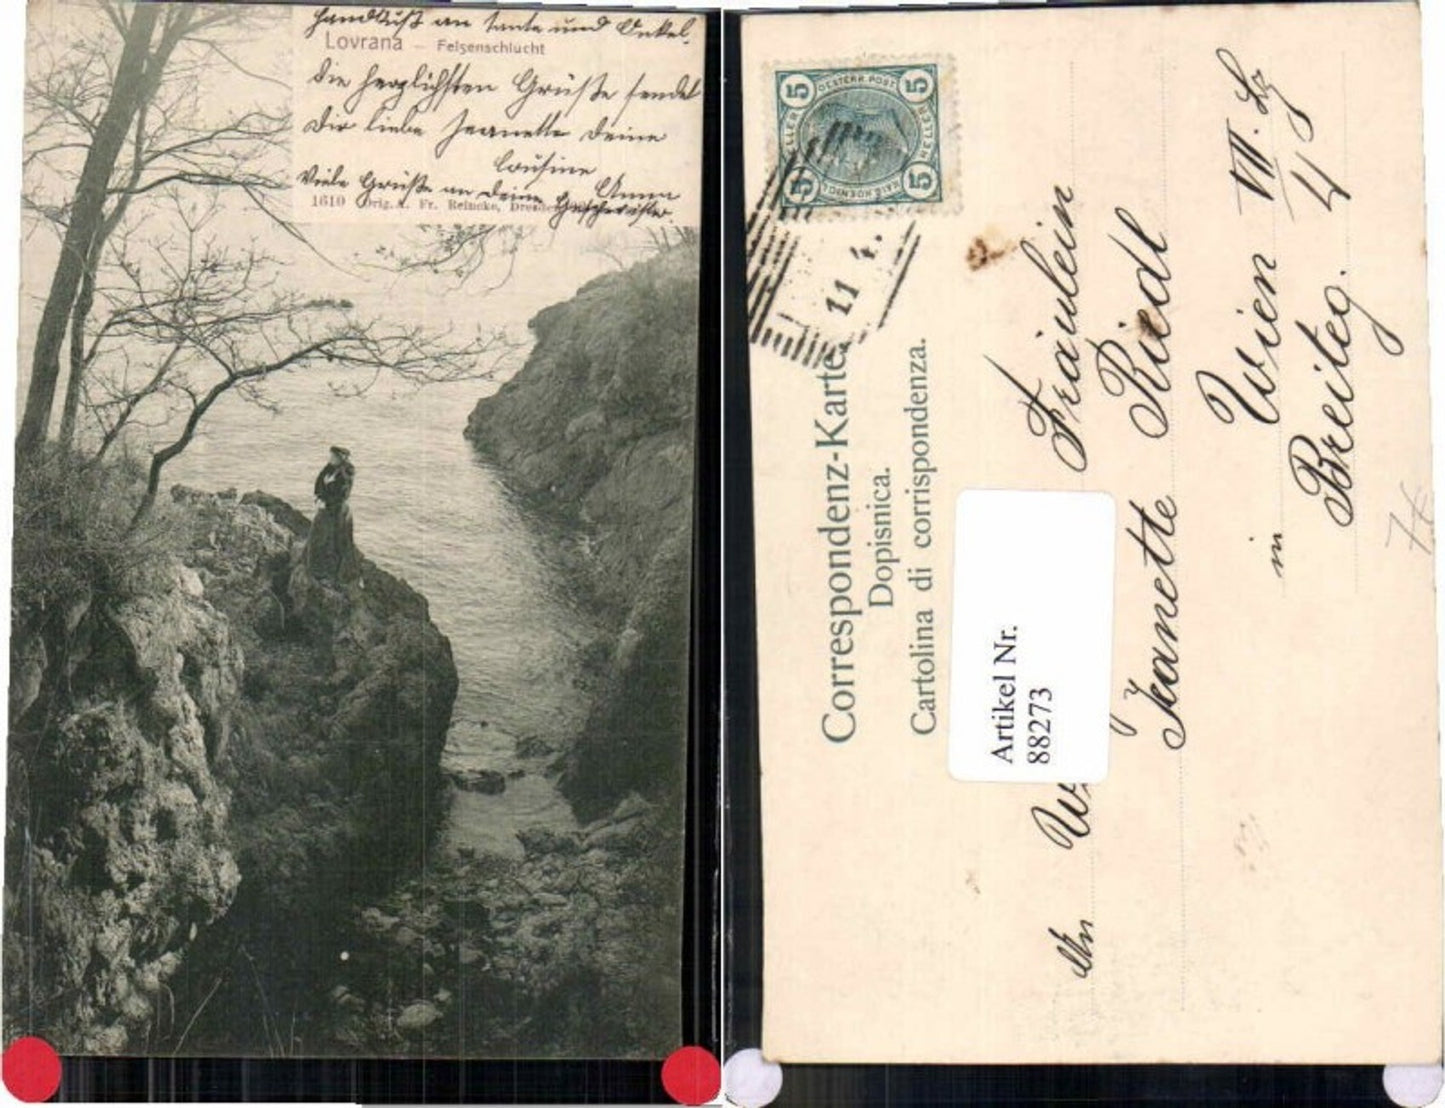 Handkuß an Tante und Onkel.
Lovrana – Felsenschlucht
Die herzlichsten Grüße sendet
Dir liebe Jeanette Deine
Cousine
Anna
Viele Grüße an Deine Geschwister.
1610 Orig. Fr. Reincke,
5 OESTERR. POST 5
HELLER HELLER
5 5
11 4.
Correspondenz-Karte.
Dopisnica.
Cartolina di corrispondenza.
Artikel Nr.
88273
An
Fräulein
Jeanette Riedl
in Wien VII. Bz
Breiteg. 4